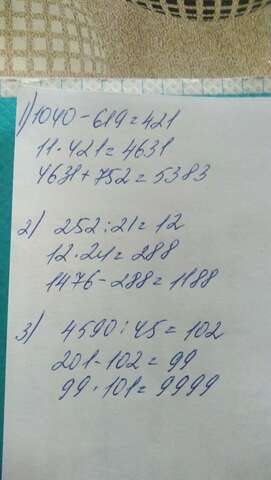 1) 1040-619=421
11·421=4631
4631+752=5383
2) 252:21=12
12·24=288
1476-288=1188
3) 4590:45=102
201-102=99
99·101=9999